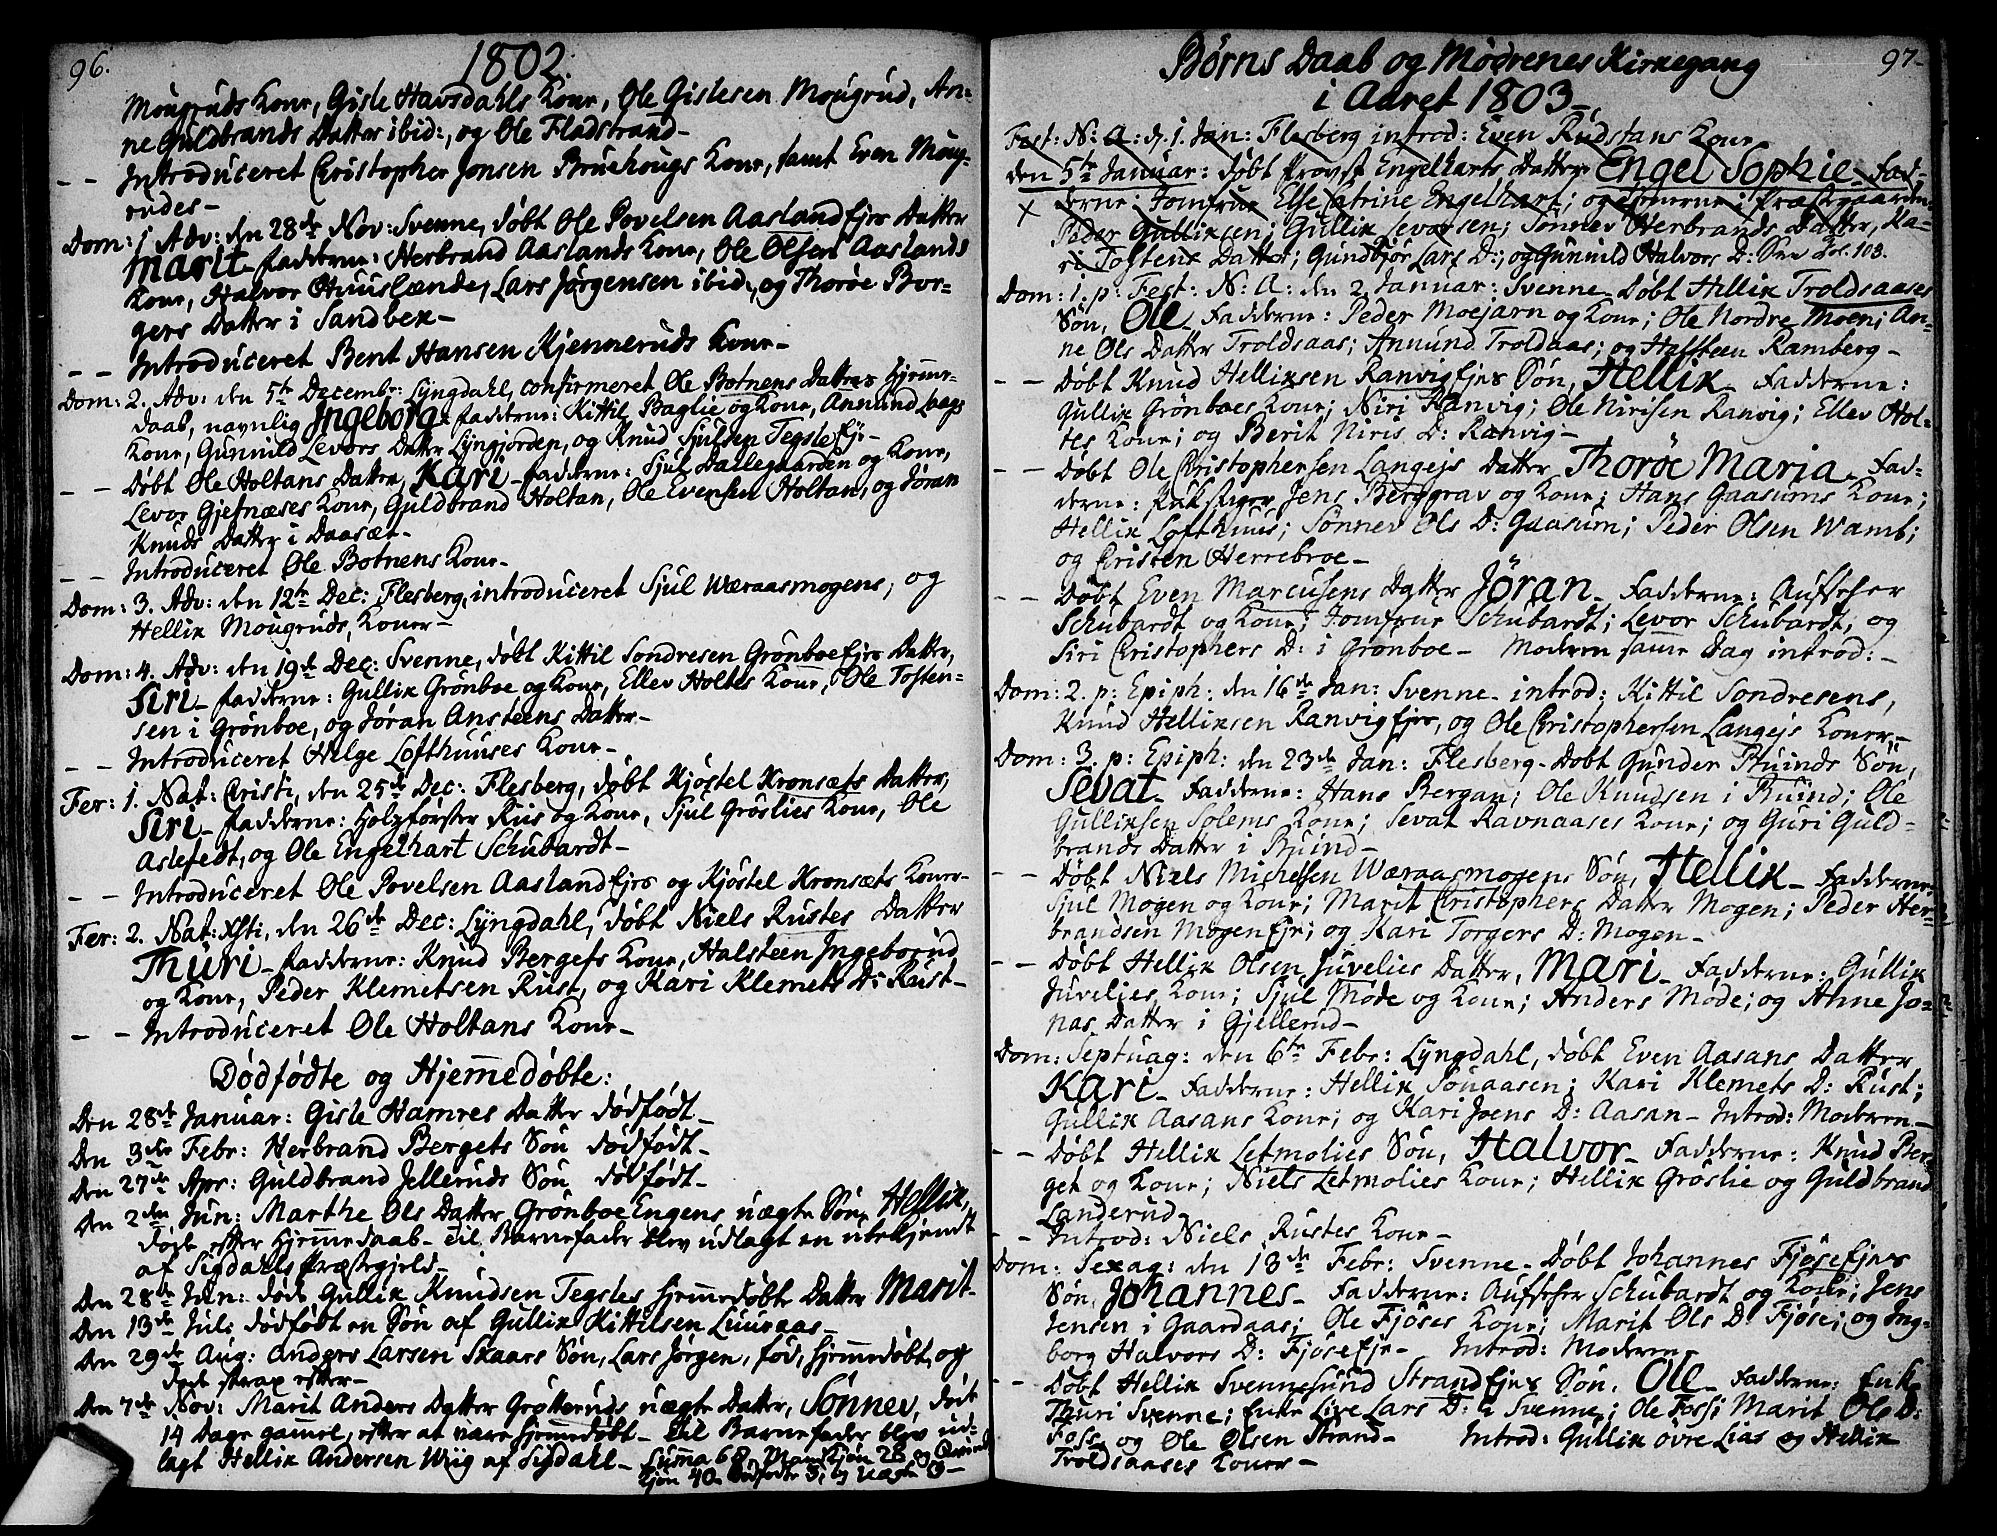 96.
1802.
Mougruds Kone, Gisle Havsdahls Kone, Ole Gislesen Mougrud, An-
ne Guldbrands Datter ibid:, og Ole Fladstrand-
- - Introduceret Christopher Jonsen Bruehougs Kone, samt Even Moug-
rudes-
Dom: 1 Adv: den 28de Nov: Svenne, døbt Ole Povelsen Aaslandejes Datter
Marit- Fadderne: Herbrand Aaslands Kone, Ole Olsen Aaslands
Kone, Halvor Huuslænde, Lars Jørgensen ibid:, og Thorøe Bor-
gers Datter i Sandbek-
- - Introduceret Bent Hansen Kjenneruds Kone-
Dom: 2. Adv: den 5te Decembr: Lyngdahl, confirmeret Ole Botnens Datters Hjemme-
daab, navnlig Ingeborg- Fadderne: Kittil Baglie og Kone, Annund Laags
Kone, Gunnild Levors Datter Lyngjorden, og Knud Sjulsen Tegsleeje-
- - Døbt Ole Holtans Datter, Kari- Fadderne: Sjul Dallegaarden og Kone,
Levor Gjefnæses Kone, Guldbrand Holtan, Ole Evensen Holtan, og Jøran
Knuds Datter i Daasæt-
- - Introduceret Ole Botnens Kone-
Dom: 3. Adv: den 12te Dec: Flesberg, introduceret Sjul Wæraasmogens, og
Hellik Mougruds, Koner-
Dom: 4. Adv: den 19de Dec: Svenne, døbt Kittil Sondresen Grønboeejes Datter,
Siri- Fadderne: Gullik Grønboe og Kone, Ellev Holtes Kone, Ole Tosten-
sen i Grønboe, og Jøran Ansteens Datter-
- - Introduceret Helge Lofthuuses Kone-
Fer: 1. Nat: Christi, den 25de Dec: Flesberg, døbt Kjøstel Kronsæts Datter,
Siri- Fadderne: Holzførster Ruis og Kone, Sjul Grøslies Kone, Ole
Aslefedt, og Ole Engelhart Schubardt-
- - Introduceret Ole Povelsen Aaslandejes og Kjøstel Kronsæts Koner-
Fer: 2. Nat: Xsti, den 26de Dec: Lyngdahl, døbt Niels Rustes Datter
Thuri- Fadderne: Knud Bergets Kone, Halsteen Ingeborud
og Kone, Peder Klemetsen Rust, og Kari Klemets D: Rust-
- - Introduceret Ole Holtans Kone-
Dødfødte og Hjemmedøbte:
Den 28de Januar: Gisle Hamres Datter dødfødt-
Den 3die Febr: Herbrand Bergets Søn dødfødt-
Den 27de Apr: Guldbrand Jelleruds Søn dødfødt-
Den 2den Jun: Marthe Ols Datter Grønboe Engens uægte Søn, Hellik,
døde efter Hjemmedaab- til Barnefader blev udlagt en ubekjendt
af Sigdahls Præstegjeld-
Den 28de Jun: døde Gullik Knudsen Tegsles hjemmedøbte Datter Marit-
Den 13de Jul: dødfødt en Søn af Gullik Kittilsen Luuraas-
Den 29de Aug: Anders Larsen Skaars Søn, Lars Jørgen, fød, hjemmedøbt, og
døde strax efter-
Den 7de Nov: Marit Anders Datter Grøtteruds uægte Datter, Sønnev, døde
14 Dage gammel, efter at være hjemmedøbt- til Barnefader blev ud-
lagt Hellik Andersen Wiig af Sigdahl- Summa 68, Mandkjøn 28 og Qvind-
kjøn 40. Dødfødte 5, og Uægte

97-
Børns Daab og Mødrenes Kirkegang
i Aaret 1803-
Fest: N: A: d. 1. Jan: Flesberg introd: Even Rudstans Kone
den 5te Januar: døbt Provst Engelharts Datter Engel Sophie- Fad-
x derne: Jomfrue Else Catrine Engelhart; og Børnene i Præstegaarden
Peder Gulliksen; Gullik Levorsen; Sønnev Herbrands Datter, Ka-
ri Tostens Datter; Gundbjør Lars D:; og Gunnild Halvors D: See Fol. 103.
Dom: 1. p: Fest: N: A: den 2. Januar: Svenne- Døbt Hellik Troldsaases
Søn, Ole- Fadderne: Peder Moejarn og Kone; Ole Nordre Moen; An-
ne Ols Datter Troldsaas; Annund Troldaas; og Halsteen Ramberg-
- - Døbt Knud Helliksen Ranvigejes Søn, Hellik- Fadderne:
Gullik Grønboes Kone; Niri Ranvig; Ole Nirisen Ranvig; Ellev Hol-
tes Kone; og Berit Niris D: Ranvig-
- - Døbt Ole Christophersen Langejs Datter, Thorøe Maria- Fad-
derne: Jens Berggrav og Kone; Hans Gaasums Kone;
Hellik Lofthuus; Sønnev Ols D: Gaasum; Peder Olsen Wamb;
og Cristen Herrebroe-
- - Døbt Even Marcusens Datter Jöran- Fadderne: Aufseher
Schubardt og Kone; Jomfrue Schubardt; Levor Schubardt, og
Siri Christophers D: i Grønboe- Moderen samme Dag introd:-
Dom: 2. p: Epiph: den 16de Jan: Svenne- introd: Kittil Sondresens,
Knud Helliksen Ranvigejes, og Ole Christophersen Langejs Koner-
Dom: 3. p: Epiph: den 23de Jan: Flesberg- Døbt Gunder Ruinds Søn,
Sevat- Fadderne: Hans Bergan; Ole Knudsen i Ruind; Ole
Gulliksen Solems Kone; Sevat Ravnaases Kone; og Guri Guld-
brands Datter i Ruind-
- - Døbt Niels Michelsen Wæraasmogens Søn, Hellik- Fadderne:
Sjul Mogen og Kone; Marit Christophers Datter Mogen; Peder Her-
brandsen Mogeneje; og Kari Torgers D: Mogen-
- - Døbt Hellik Olsen Juvelies Datter, Mari- Fadderne: Gullik
Juvelies Kone; Sjul Møde og Kone; Anders Møde; og Anne Jo-
nas Datter i Gjellerud-
Dom: Septuag: den 6te Febr: Lyngdahl, døbt Even Aasans Datter
Kari- Fadderne: Hellik Souaasen; Kari Klemets D: Rust;
Gullik Aasans Kone; og Kari Joens D: Aasan- Introd: Moderen-
- - Døbt Hellik Letmolies Søn, Halvor- Fadderne: Knud Ber-
get og Kone; Niels Letmolies Kone; Hellik Grøslie og Guldbrand
Landerud-
- - Introd: Niels Rustes Kone-
Dom: Sexag: den 13de Febr: Svenne- Døbt Johannes Fjøseejes
Søn, Johannes- Fadderne: Aufseher Schubardt og Kone; Jens
Jensen i Gaardaas; Ole Fjøses Kone; Marit Ols D: Fjøse; og Ing-
borg Halvors D: Fjøseeje- Introd: Moderen-
- - Døbt Hellik Svennesund Strandejes Søn, Ole- Fadderne: Enke
Thuri Svenne; Enke Live Lars D: i Svenne; Ole Foss; Marit Ols D:
Foss og Ole Olsen Strand- Introd: Gullik øvre Lias og Hellik
Troldsaases Koner-